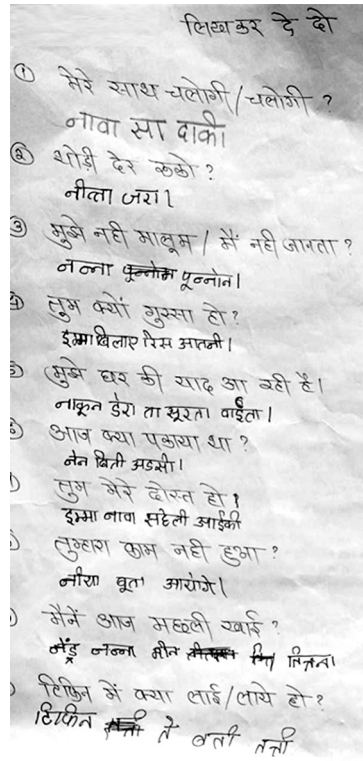 लिखकर दे दो
① मेरे साथ चलोगी/चलोगी ?
नावा सा दाकी
② थोड़ी देर रूको ?
नीत्ता जरा ।
③ मुझे नही मालूम / मैं नही जानता ?
नन्ना पून्नोन ।
④ तुम क्यों गुस्सा हो ?
इम्मा बिलाए रिस आतनी ।
मुझे घर की याद आ रही है ।
नाकून डेरा ता सूरता वाईता ।
आज क्या पकाया था ?
नेन बिती अडसी ।
तुम मेरे दोस्त हो !
इम्मा नावा सहेली आईकी
तुम्हारा काम नही हुआ ?
नीया बूता आयोगे ।
मैनें आज मछली खाई ?
नेंड्र नन्ना मीन तित्तना
टिफिन में क्या लाई/लाये हो ?
टिफिन ते बती तत्ती